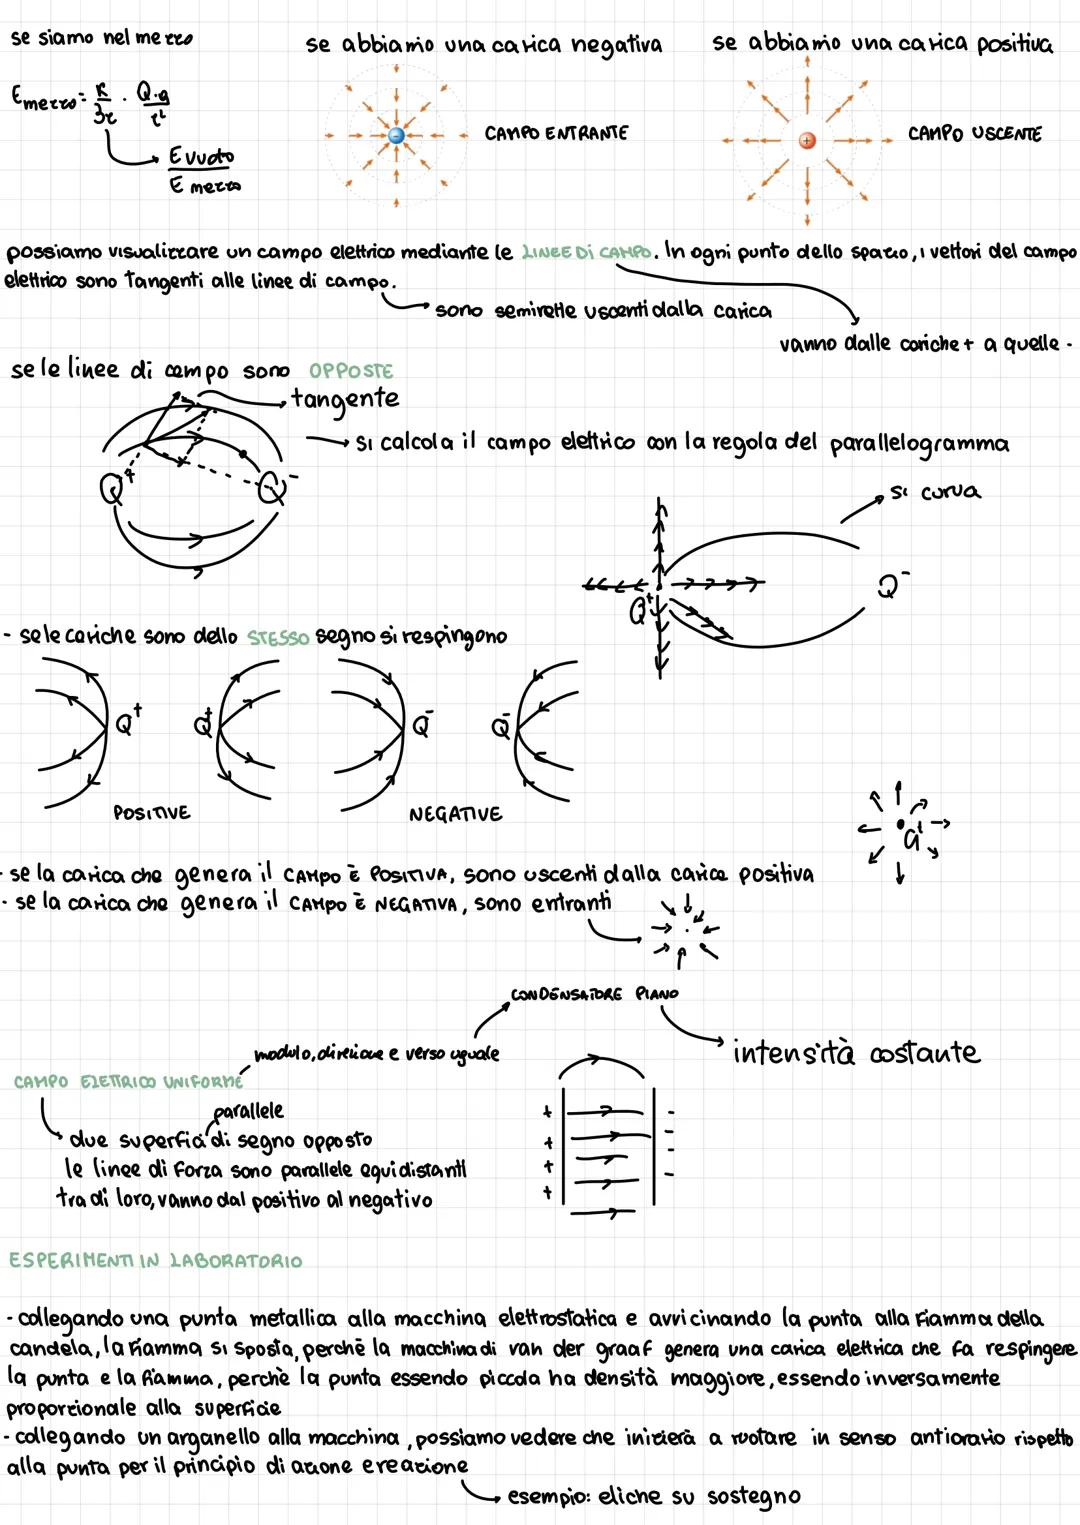 se siamo nel mezzo
se abbiamo una carica negativa
se abbiamo una carica positiva
Emezzo = K/3r · Q·q/r²
E vuoto
E mezzo
CAMPO ENTRANTE
CAMPO USCENTE
possiamo visualizzare un campo elettrico mediante le LINEE DI CAMPO. In ogni punto dello spazio, i vettori del campo
elettrico sono tangenti alle linee di campo.
sono semirette uscenti dalla carica
vanno dalle cariche + a quelle -
se le linee di campo sono OPPOSTE
tangente
si calcola il campo elettrico con la regola del parallelogramma
si curva
Q+
Q-
Q+
Q-
- se le cariche sono dello STESSO segno si respingono
Q+
Q+
Q-
Q-
POSITIVE
NEGATIVE
Q+
- se la carica che genera il CAMPO È POSITIVA, sono uscenti dalla carica positiva
- se la carica che genera il CAMPO È NEGATIVA, sono entranti
CONDENSATORE PIANO
modulo, direzione e verso uguale
intensità costante
CAMPO ELETTRICO UNIFORME
parallele
due superfici di segno opposto
le linee di forza sono parallele equidistanti
tra di loro, vanno dal positivo al negativo
+ + + +
- - - -
ESPERIMENTI IN LABORATORIO
- collegando una punta metallica alla macchina elettrostatica e avvicinando la punta alla fiamma della
candela, la fiamma si sposta, perchè la macchina di van der graaf genera una carica elettrica che fa respingere
la punta e la fiamma, perchè la punta essendo piccola ha densità maggiore, essendo inversamente
proporzionale alla superficie
- collegando un arganello alla macchina, possiamo vedere che inizierà a ruotare in senso antiorario rispetto
alla punta per il principio di azione e reazione
esempio: eliche su sostegno